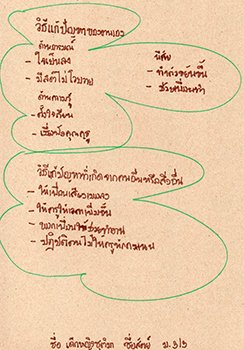 วิธีแก้ปัญหาของตนเอง
ด้านอารมณ์
- ใจเย็นลง
- มีสติไม่โวยวาย
ด้านการรู้
- ตั้งใจเรียน
- เชื่อฟังคุณครู
นิสัย
- ทำตัวขยันขึ้น
- ช่วยเพื่อนทำ
วิธีแก้ปัญหาที่เกิดจากคนอื่นหรือสิ่งอื่น
- ให้เพื่อนเสียงเบาลง
- ให้ครูให้เวลาเพิ่มขึ้น
- บอกเพื่อนให้ช่วยทำงาน
- ปฏิบัติตนไม่ให้ครู
ชื่อ เด็กหญิง ชื่อ ม.3/3